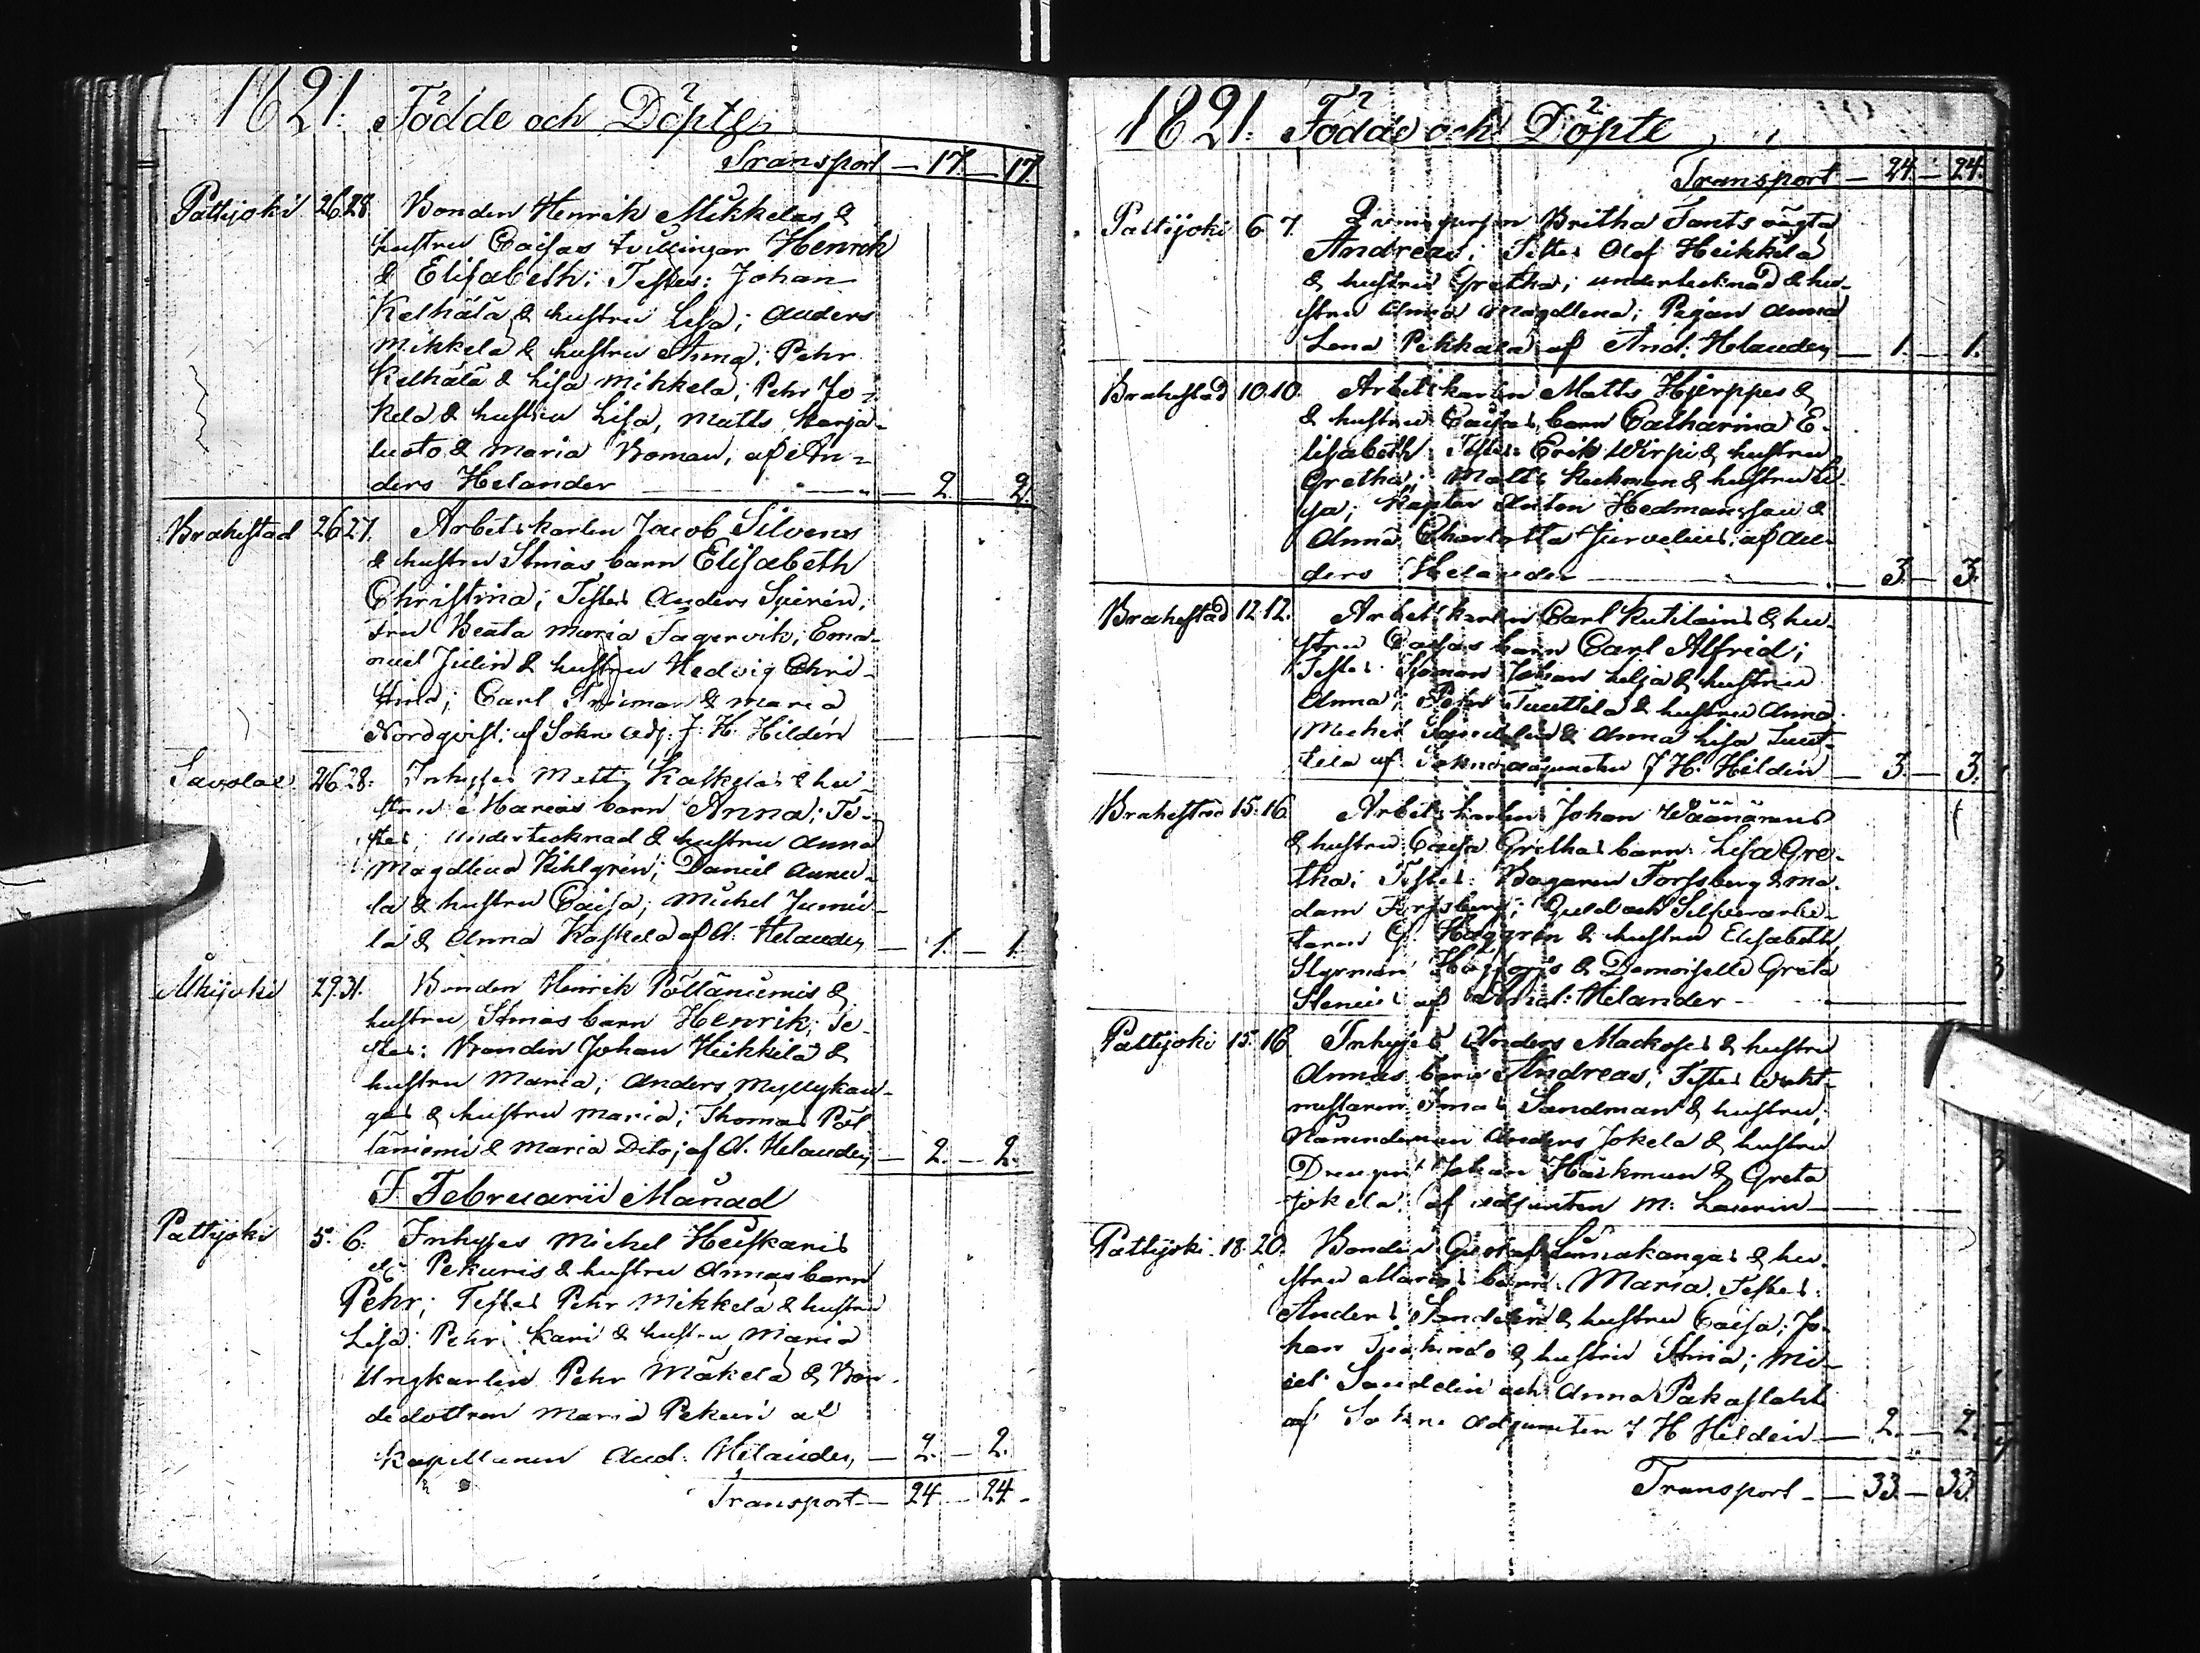 1821. Födde och Döpte
Transport — 17. — 17.
Pattijoki 26. 28. Bonden Henrik Mikkelas &
hustru Caisas tvillingar Henrik
& Elisabeth; Testes: Johan
Kelhälä & hustru Lisa; Anders
Mikkela & hustru Anna; Pehr
Kelhälä & Lisa Mikkela; Pehr Jo-
kela & hustru Lisa, Matts Karja-
luoto & Maria Boman, af An-
ders Helander — 2. — 2.
Brahestad 26 27. Arbetskarlen Jacob Silvens
& hustru Stinas barn Elisabeth
Christina; Testes Anders
Beata Maria Fagervik; Ema-
nuel Julin & hustru Hedvig Chri-
stina; Carl & Maria
Nordqvist; af Sokne Adj. J. H. Hildén
Savolax 26 28. Inhyses Matts Kaskelas & hu-
stru Marias barn Anna; Te-
stes; undertecknad & hustru Anna
Magdlena Kihlgrén; Daniel
la & hustru Caisa; Michel
la & Anna Kaskela af A. Helander — 1. — 1.
29. 31. Bonden Henrik Pölläniemis &
hustru Stinas barn Henrik; Te-
stes: Bonden Johan Heikkilä &
hustru Maria; Anders Myllykan-
gas & hustru Maria; Thomas Pöl
läniemi & Maria Dito; af A. Helander — 2. — 2.
I Februarii Månad
Pattijoki 5. 6. Inhyses Michel Heiskaris
el. Pekuris & hustru Annas barn
Pehr; Testes Pehr Mikkelä & hustru
Lisa. Pehr Kari & hustru Maria
Ungkarlen Pehr Mäkelä & Bon-
dedottren Maria Pekuri af
Kapellanen And. Helander — 2. — 2.
Transport — 24. — 24.
1821. Födde och Döpte
Transport — 24. — 24.
Pattijoki 6 7. Britha Fants oägta
Andreas; Testes Olof Heikkilä
& hustru Gretha; undertecknad & hu-
stru Anna Magdlena; Pigan Anna
Lena Pekkala af And: Helander — 1. — 1.
Brahestad 10. 10. Arbetskarlen Matts Hjerppes &
& hustru Caisas barn Catharina E-
lisabeth Testes: Erik Wirpi & hustru
Gretha; Matts & hustru Li-
sa; Anton Hedmansson &
Anna Charlotta af An-
ders Helander — 3. — 3.
Brahestad 12. 12. Arbetskarlen Carl Kutilains & hu-
stru Caisas barn Carl Alfrid;
Testes Sjöman Johan Lilja & hustru
Anna; Pehr Tuuttila & hustru Anna
Michel Sandelin & Anna Lisa Tuut-
tila af Sokneadjuncten J. H. Hildén — 3. — 3.
Brahestad 15. 16. Arbetskarlen Johan Wäänänens
& hustru Caisa Grethas barn Lisa Gre-
tha; Testes: Bagaren Forssberg & ma-
dam Forssberg; Guld och Silfverarbe-
taren G. Häggrén & hustru Elisabeth,
Styrman & Demoiselle Greta
Stenius af And: Helander
Pattijoki 15. 16 Inhyses Anders Mackoses & hustru
Annas barn Andreas; Testes Wakt-
mestaren Sandman & hustru,
Nämndeman Anders Jokela & hustru
Drengen Johan Häckman & Greta
Jokela; af adjuncten M: Laurin
Pattijoki 18. 20. Bonden Gustaf Linnakangas & hu-
stru Marias barn Maria. Testes:
Anders Sandelin & hustru Caisa; Jo-
han & hustru Stina; Mi-
cel Sandelin och Anna Pakaslahti
af Sokne Adjuncten J H Hildén — 2. — 2.
Transport — 33. — 33.